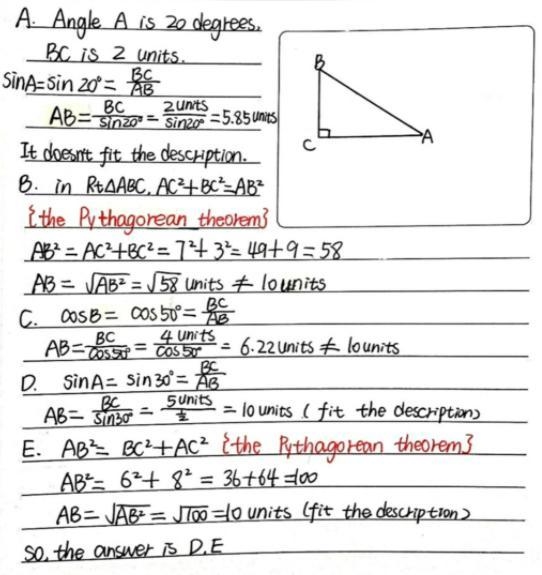 A. Angle A is 20 degrees.
BC is 2 units.
sinA=sin 20°= BC/AB
AB= BC/sin20° = 2units/sin20° =5.85units
It doesn't fit the description.
B. in Rt△ABC, AC²+BC²=AB²
{the Pythagorean theorem}
AB² = AC²+BC² = 7²+3² = 49+9 = 58
AB = √AB² = √58 units ≠ 10units
C. cosB = cos50° = BC/AB
AB= BC/cos50° = 4 units/cos50° = 6.22units ≠ 10units
D. sinA = sin30° = BC/AB
AB= BC/sin30° = 5units/½ = 10 units ( fit the description)
E. AB²= BC²+AC² {the Pythagorean theorem}
AB²= 6²+8² = 36+64=100
AB= √AB² = √100 =10 units (fit the description)
so, the answer is D.E
B
C
A